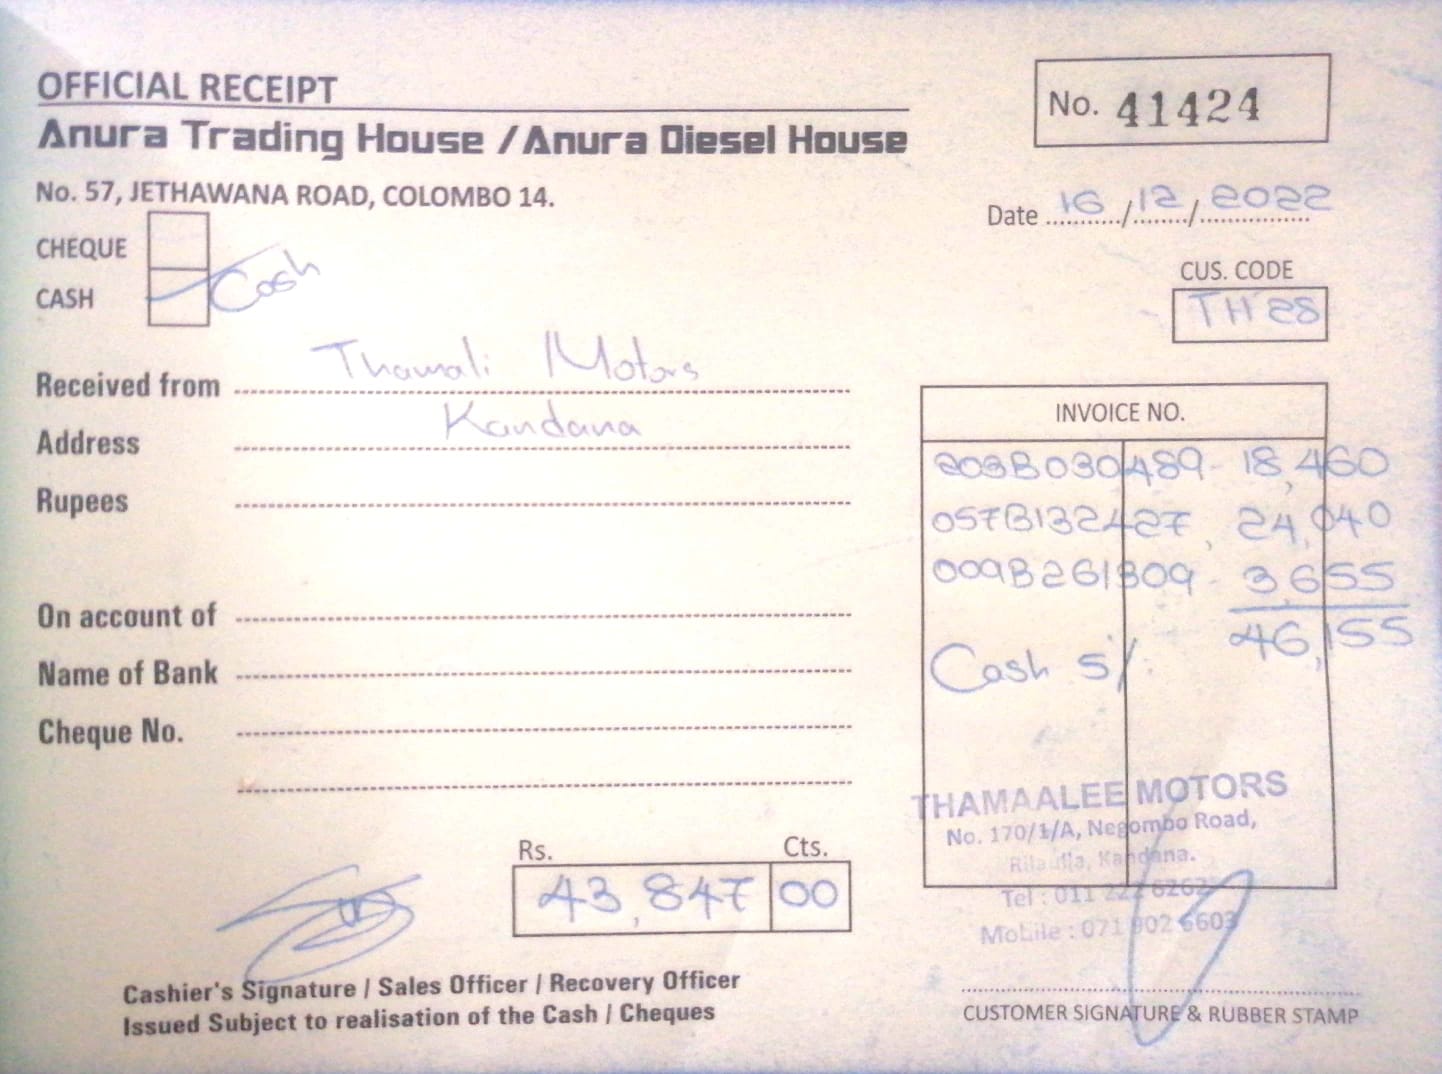 OFFICIAL RECEIPT
No. 41424
Anura Trading House / Anura Diesel House
No. 57, JETHAWANA ROAD, COLOMBO 14.
Date 16/12/2022
CHEQUE
CASH Cash
CUS. CODE
TH 28
Received from Thamali Motors
Address Kandana
Rupees
On account of
Name of Bank
Cheque No.
INVOICE NO.
203B030489 - 18,460
057B132427, 24,040
009B261809 - 3,655
46,155
Cash 5%
THAMAALEE MOTORS
No. 170/1/A, Negombo Road,
Kandana.
Tel : 011 222 6262
Mobile : 071 902 6603
Rs. Cts.
43,847 00
Cashier's Signature / Sales Officer / Recovery Officer
Issued Subject to realisation of the Cash / Cheques
CUSTOMER SIGNATURE & RUBBER STAMP